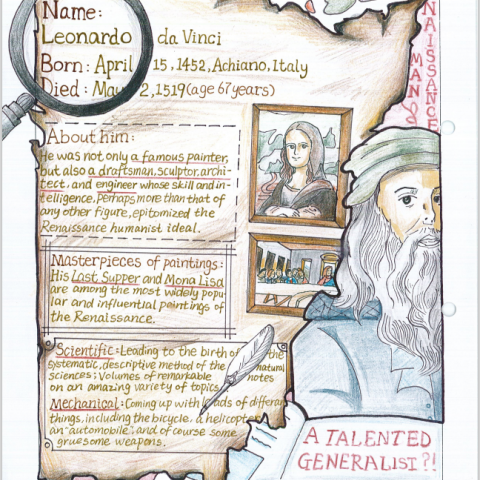 Name:
Leonardo da Vinci
Born: April 15, 1452, Achiano, Italy
Died: May 2, 1519 (age 67 years)
RENAISSANCE
MAN
About him:
He was not only a famous painter,
but also a draftsman, sculptor, archi-
tect, and engineer whose skill and in-
telligence, perhaps more than that of
any other figure, epitomized the
Renaissance humanist ideal.
Masterpieces of paintings:
His Last Supper and Mona Lisa
are among the most widely popu
lar and influential paintings of
the Renaissance.
Scientific: Leading to the birth of the
systematic, descriptive method of the natural
sciences; Volumes of remarkable notes
on an amazing variety of topics
Mechanical: Coming up with of
things, including the bicycle, a helicopter
an "automobile", and of course some
gruesome weapons.
A TALENTED
GENERALIST?!